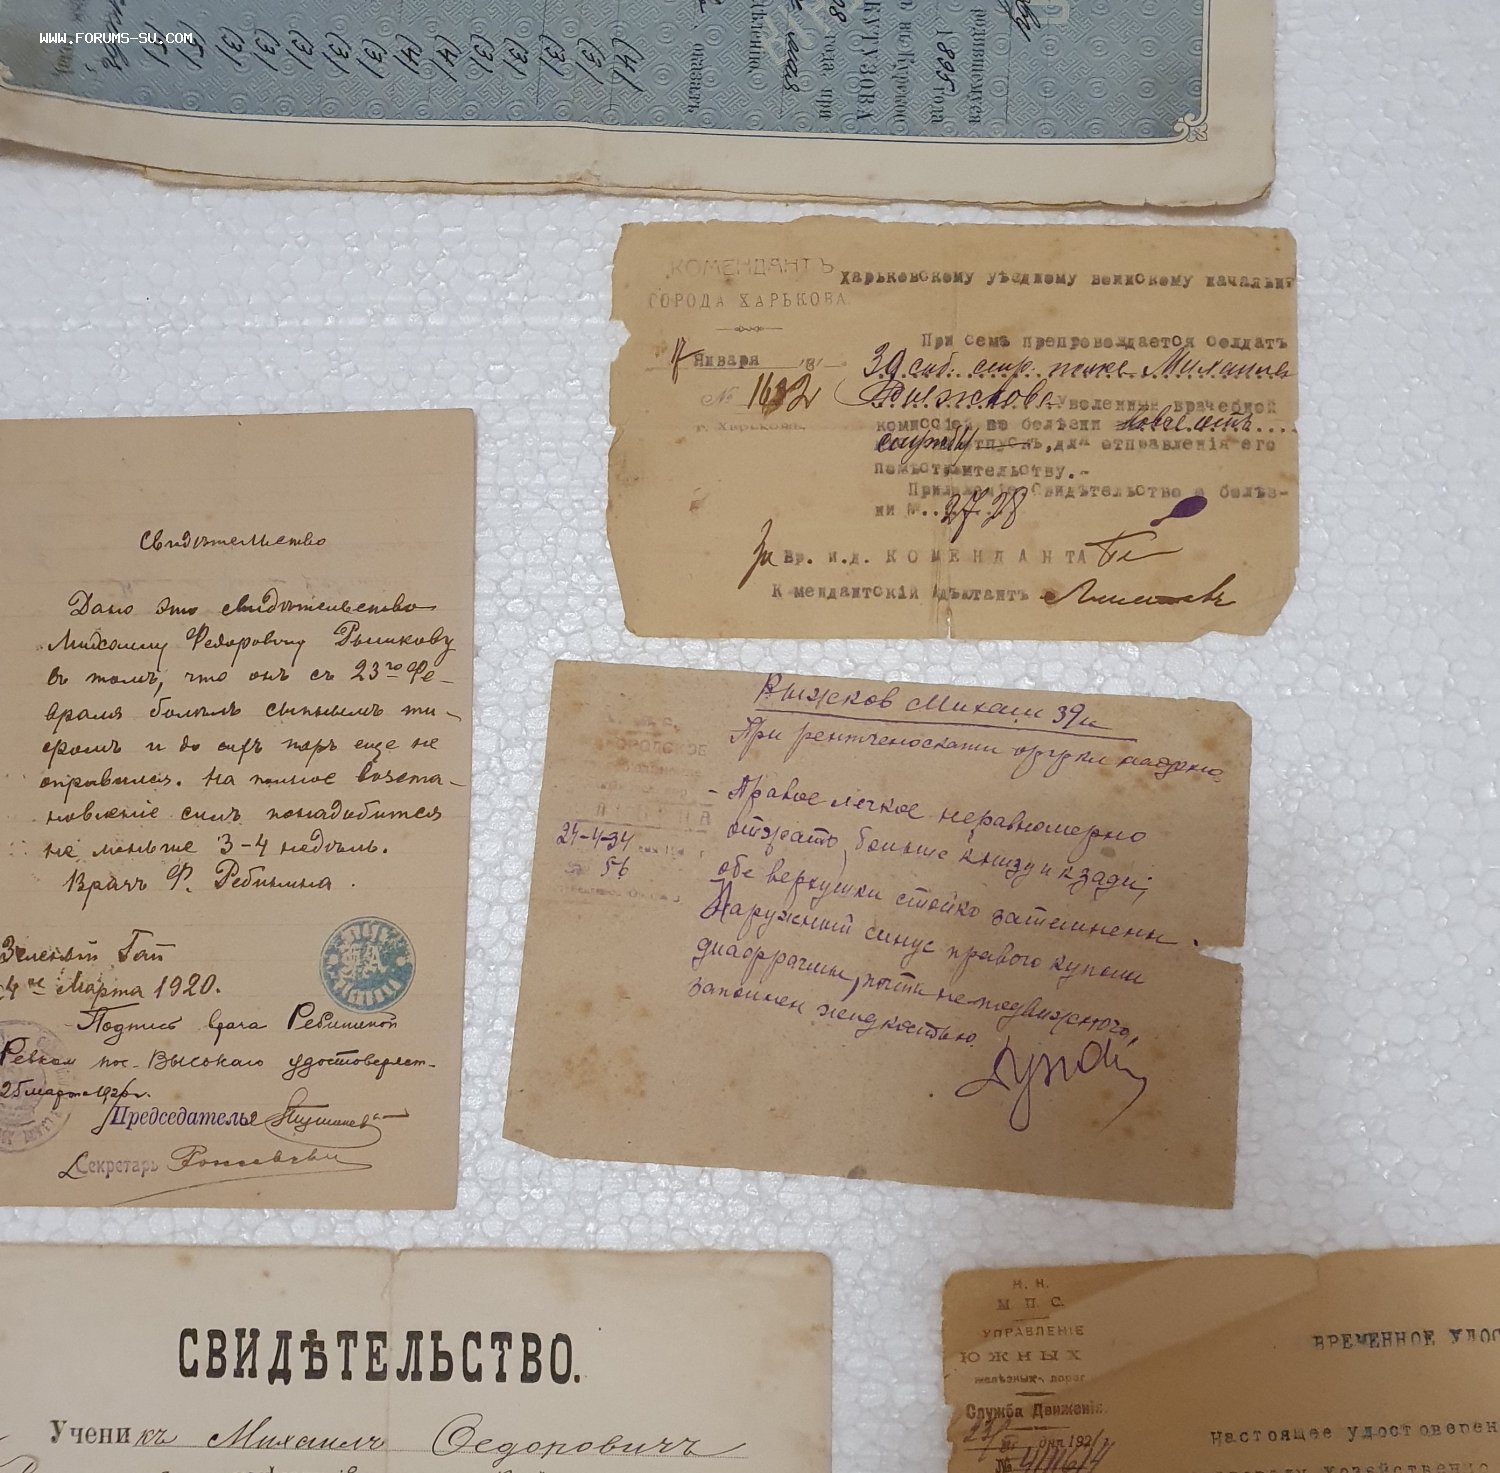 WWW.FORUMS-SU.COM
родившемуся
1895 года
въ не-Курскос
КУТУЗОВА
года при
авленіи,
оказалъ
(4)
(3)
(3)
(3)
(4)
(4)
(3)
(3)
(3)
(3)
КОМЕНДАНТЪ
ГОРОДА ХАРЬКОВА.
17 Января
№ 1632
г. Харьковъ.
Харьковскому уѣздному воинскому начальни
При семъ препровождается солдатъ
30 сиб. стр. полка Михаилъ
Рыжковъ уволенный врачебной
комиссіей по болѣзни вовсе отъ
службы отпускъ, для отправленія его
по мѣстожительству.-
Приложеніе: Свидѣтельство о болѣз-
ни №. 2728
За Вр. и.д. КОМЕНДАНТА
Комендантскій Адъютантъ
Свидѣтельство
Дано это свидѣтельство
Михаилу Федоровичу Рыжкову
въ томъ, что онъ съ 23го Фе-
враля болѣлъ сыпнымъ ти-
фомъ и до сихъ поръ еще не
оправился. На полное возста-
новленіе силъ понадобится
не меньше 3-4 недѣль.
Врачъ Ф. Ребинина.
Зеленый Гай
24го Марта 1920.
Подпись врача Ребининой
Ревком пос. Высокаго удостоверяет-
25 марта 1920 г.
Председатель
Секретарь
Рыжков Михаил 39 л
При рентгеноскопии груди найдено
- Правое легкое неравномерно
отжато, больше книзу и кзади;
обе верхушки стойко затемнены.
Наружный синус правого купола
диафрагмы, почти неподвижного,
заполнен жидкостью.
24-4-34
56
СВИДѢТЕЛЬСТВО.
Ученикъ Михаилъ Ѳедоровичъ
Н. К.
М. П. С.
УПРАВЛЕНІЕ
ЮЖНЫХ
желѣзных дорог
Служба Движенія
23/ дня 192
№ 4/1116/4
ВРЕМЕННОЕ УДОС
Настоящее удостоверен